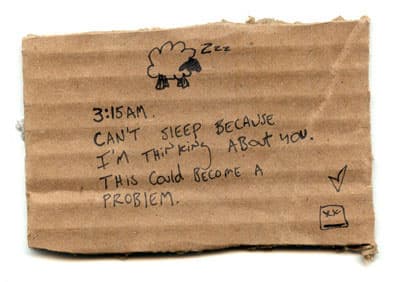 Zzz
3:15AM.
CAN'T SLEEP BECAUSE
I'M THINKING ABOUT YOU.
THIS COULD BECOME A
PROBLEM.